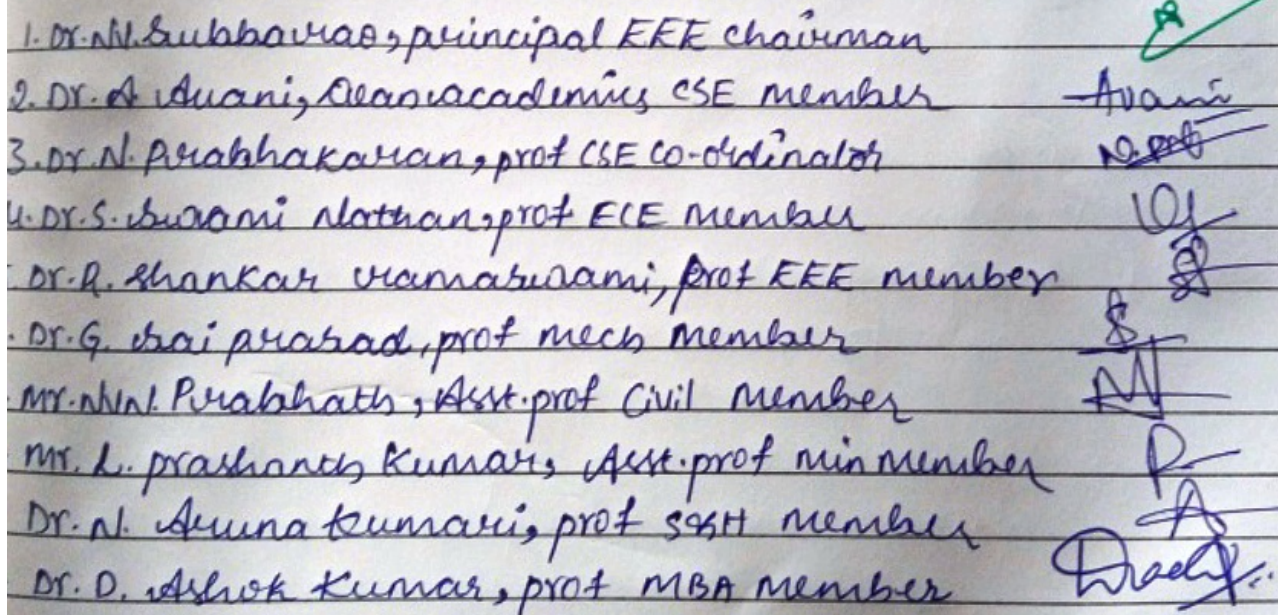 1. Dr. N.V. Subbarao, principal EEE chairman
2. Dr. A Avani, Dean academics CSE member Avani
3. Dr. N. Prabhakaran, prof CSE co-ordinator
4. Dr. S. Swami Nathan, prof ECE Member
. Dr. R. Shankar ramaswami, prof EEE member
. Dr. G. sai prasad, prof mech member
Mr. Prabhath, Asst. prof Civil member
Mr. L. prashanth Kumar, Asst. prof min member
Dr. N. Aruna kumari, prof S&H member
Dr. D. Ashok Kumar, prof MBA Member